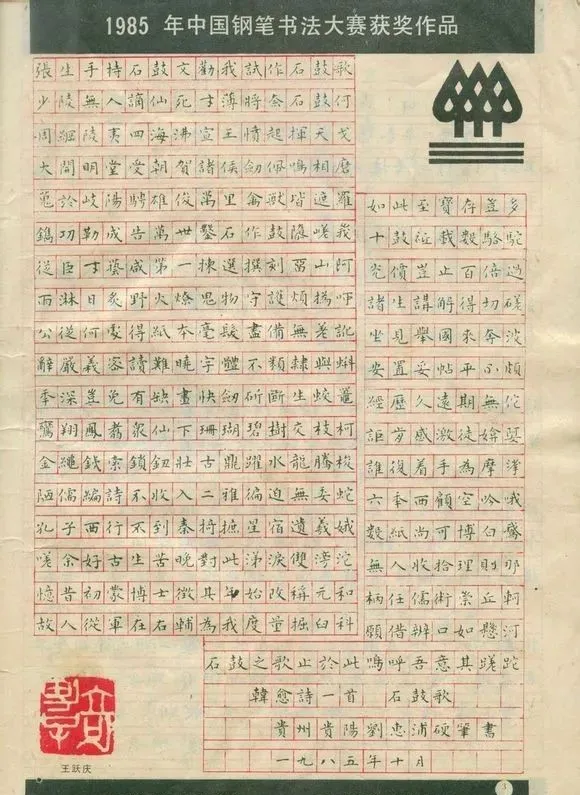 1985 年中国钢笔书法大赛获奖作品
張生手持石鼓文勸我試作石鼓歌
少陵無人謫仙死才薄將奈石鼓何
周綱陵夷四海沸宣王憤起揮天戈
大開明堂受朝賀諸侯劍佩鳴相磨
蒐於岐陽騁雄俊萬里禽獸皆遮羅
鐫功勒成告萬世鑿石作鼓隳嵯峩
從臣才藝咸第一揀選撰刻留山阿
雨淋日炙野火燎鬼物守護煩撝呵
公從何處得紙本毫髮盡備無差訛
辭嚴義密讀難曉字體不類隸與蝌
年深豈免有缺畫快劍斫斷生蛟鼉
鸞翔鳳翥衆仙下珊瑚碧樹交枝柯
金繩鐵索鎖鈕壯古鼎躍水龍騰梭
陋儒編詩不收入二雅褊迫無委蛇
孔子西行不到秦掎摭星宿遺羲娥
嗟余好古生苦晚對此涕淚雙滂沱
憶昔初蒙博士徵其年始改稱元和
故人從軍在右輔為我度量掘臼科
如此至寶存豈多
十鼓祇載數駱駝
光價豈止百倍過
諸生講解得切磋
坐見舉國來奔波
安置妥帖平不頗
經歷久遠期無佗
詎肯感激徒媕娿
誰復着手為摩挲
六年西顧空吟哦
數紙尚可博白鵞
無人收拾理則那
柄任儒術崇丘軻
願借辨口如懸河
石鼓之歌止於此嗚呼吾意其蹉跎
韓愈詩一首 石鼓歌
貴州貴陽劉忠浦硬筆書
一九八五年十月
王跃庆
3